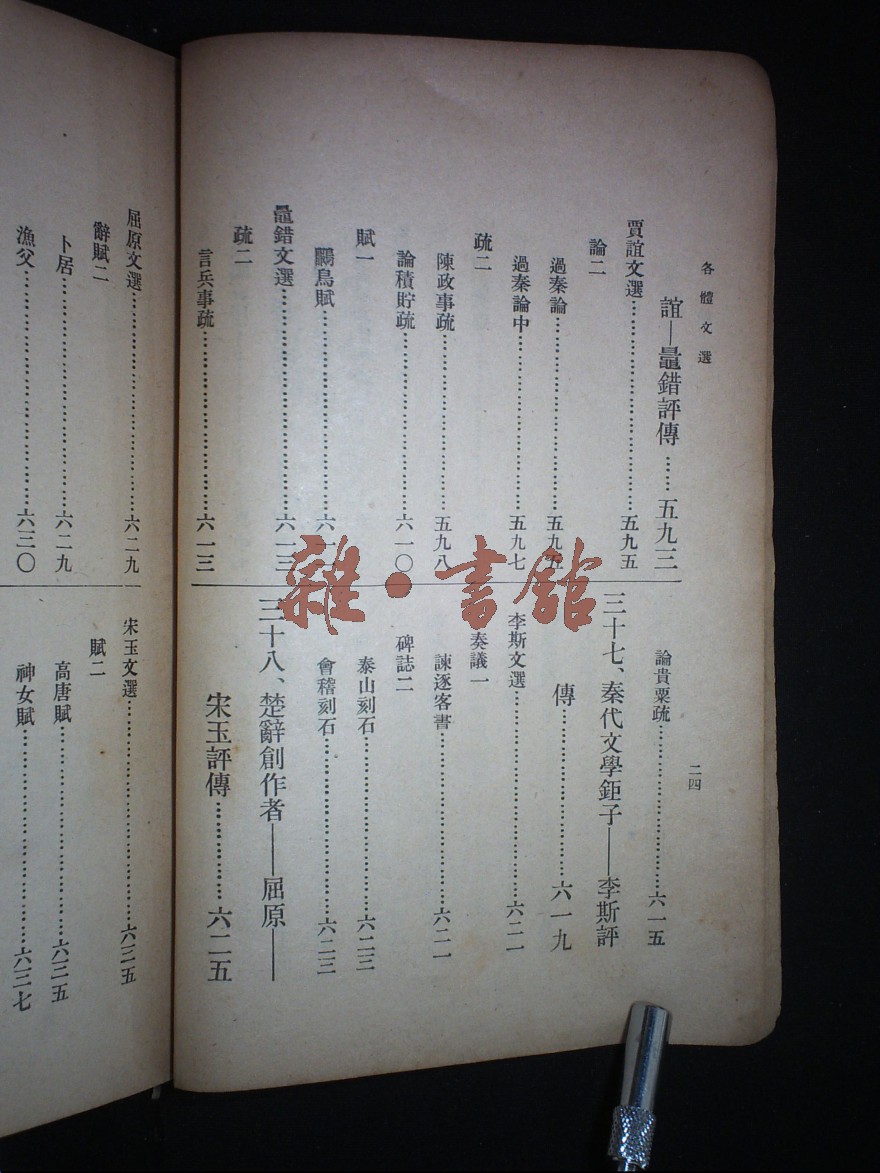 各體文選
誼—鼂錯評傳……五九三
賈誼文選……五九五
論二
過秦論……五九五
過秦論中……五九七
疏二
陳政事疏……五九八
論積貯疏……六一〇
賦一
鵩鳥賦……六一
鼂錯文選……六一三
疏二
言兵事疏……六一三
二四
論貴粟疏……六一五
三十七、秦代文學鉅子——李斯評
傳……六一九
李斯文選……六二一
奏議一
諫逐客書……六二一
碑誌二
泰山刻石……六二三
會稽刻石……六二三
三十八、楚辭創作者——屈原——
宋玉評傳……六二五
屈原文選……六二九
辭賦二
卜居……六二九
漁父……六三〇
宋玉文選……六三五
賦二
高唐賦……六三五
神女賦……六三七
雜·書館